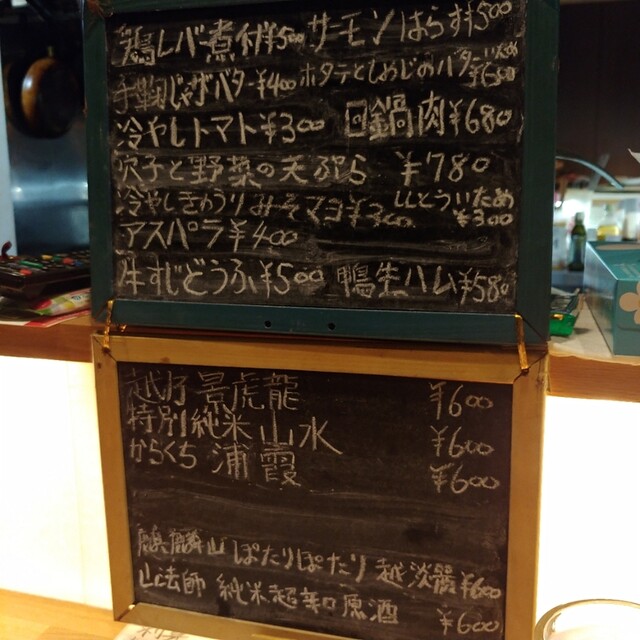 鶏レバ煮付¥500 サーモンはらす¥500
じゃがバター¥400 ホタテとしめじのバターいため ¥680
冷やしトマト¥300 回鍋肉¥680
穴子と野菜の天ぷら ¥780
冷やしきゅうりみそマヨ¥300 ししとういため ¥300
アスパラ¥400
牛すじどうふ¥500 鴨生ハム¥580
越乃景虎龍 ¥600
特別純米 山水 ¥600
からくち 浦霞 ¥600
麒麟山 ぽたりぽたり 越淡麗 ¥600
山法師 純米超辛口原酒 ¥600